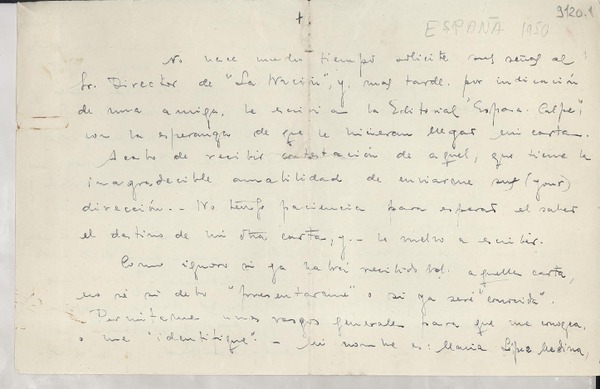 9120.1
ESPAÑA 1950
+
No hace mucho tiempo solicité sus señas al
Sr. Director de "La Nación", y, mas tarde, por indicación
de una amiga, le escribí a la Editorial "Espasa-Calpe",
con la esperanza de que le hicieran llegar mi carta.
Acabo de recibir contestación de aquel, que tiene la
inagradecible amabilidad de enviarme sus (your)
dirección. - No tengo paciencia para esperar el saber
el destino de mi otra carta, y - le vuelvo a escribir.
Como ignoro si ya habrá recibido Vd. aquella carta,
no sé si debo "presentarme" o si ya seré "conocida".
Permítame unos rasgos generales para que me conozca
o me "identifique". - Mi nombre es: María López Medina,